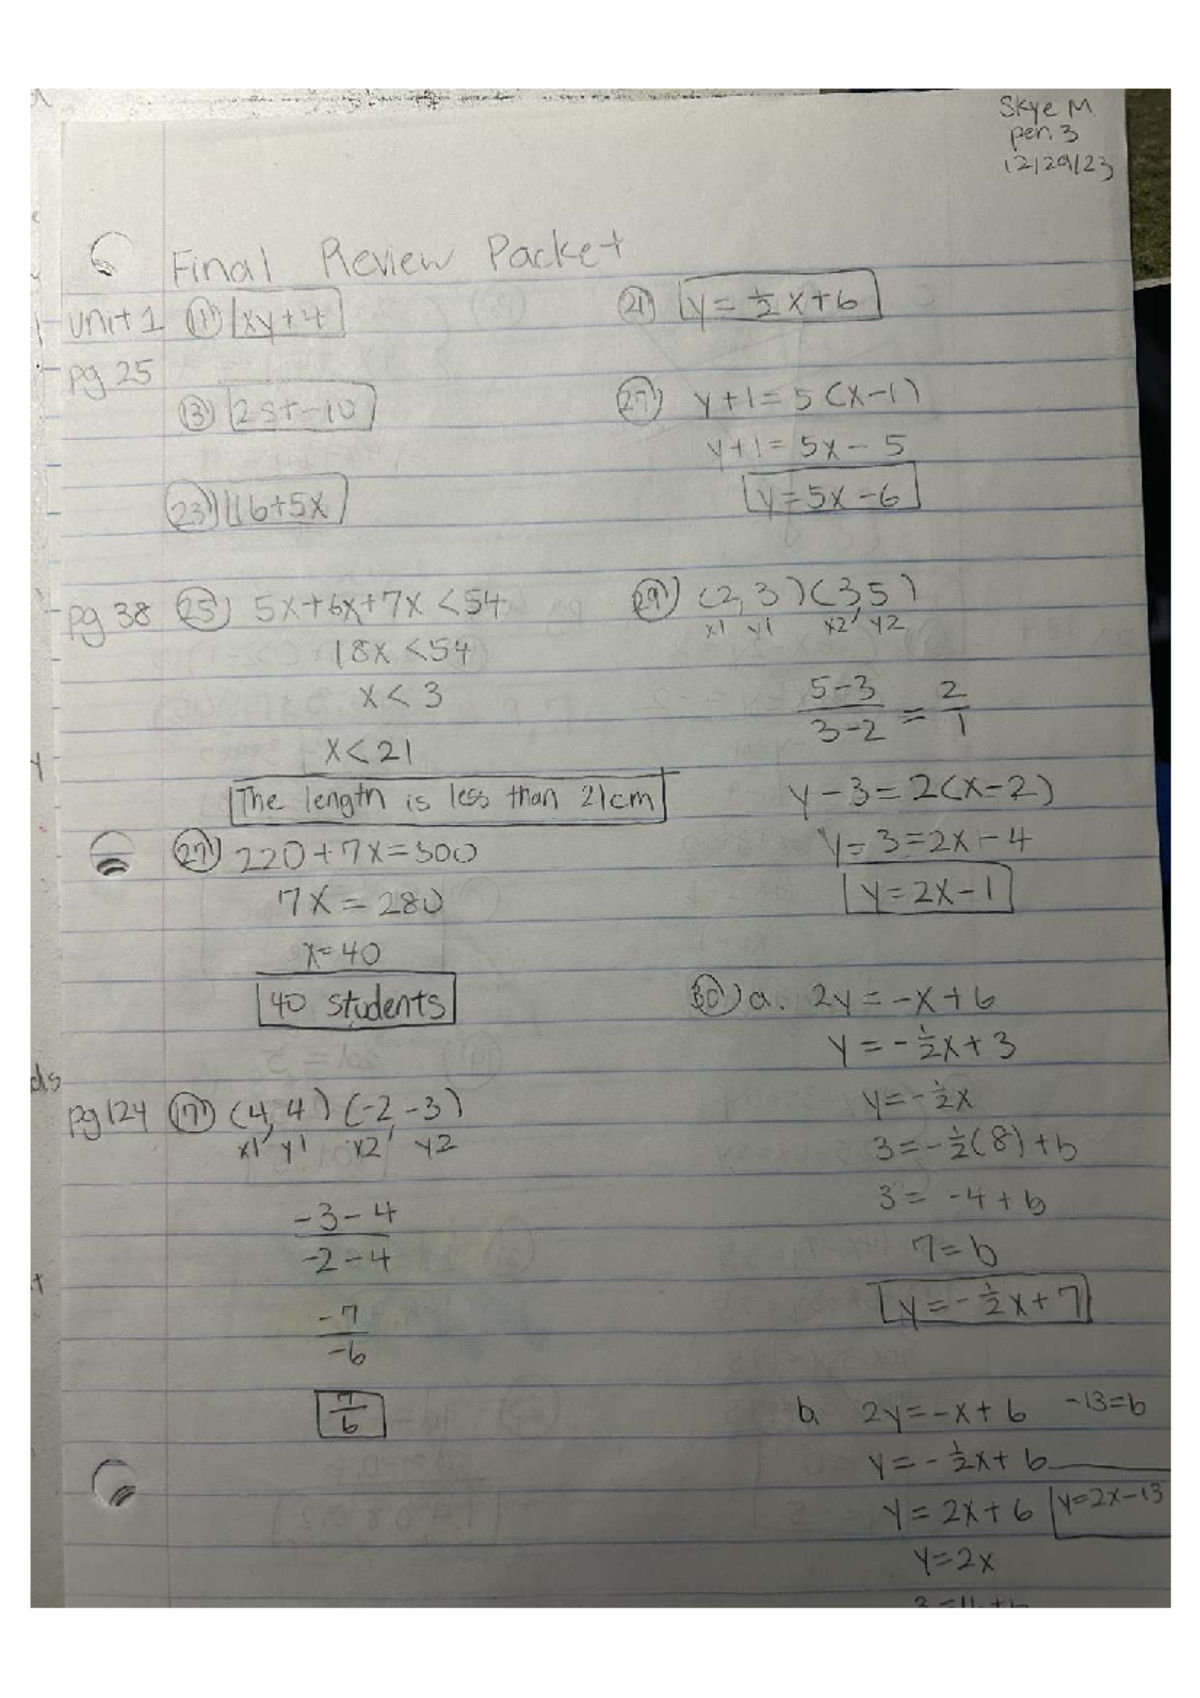 Skye M.
per. 3
12/29/23
Final Review Packet
unit 1 11) xy+4
pg 25
13) 25t-10
23) 16+5x
pg 38 25) 5x+6x+7x<54
18x<54
x<3
x<21
The length is less than 21cm
27) 220+7x=500
7x=280
x=40
40 students
pg 124 17) (4,4) (-2,-3)
x1 y1 x2 y2
-3-4
-2-4
-7
-6
7
6
21) y=1/2x+6
27) y+1=5(x-1)
y+1=5x-5
y=5x-6
29) (2,3)(3,5)
x1 y1 x2 y2
5-3 2
3-2 = 1
y-3=2(x-2)
y-3=2x-4
y=2x-1
30) a. 2y=-x+6
y=-1/2x+3
y=-1/2x
3=-1/2(8)+b
3=-4+b
7=b
y=-1/2x+7
b. 2y=-x+6 -13=b
y=-1/2x+6
y=2x+6 y=2x-13
y=2x
ds